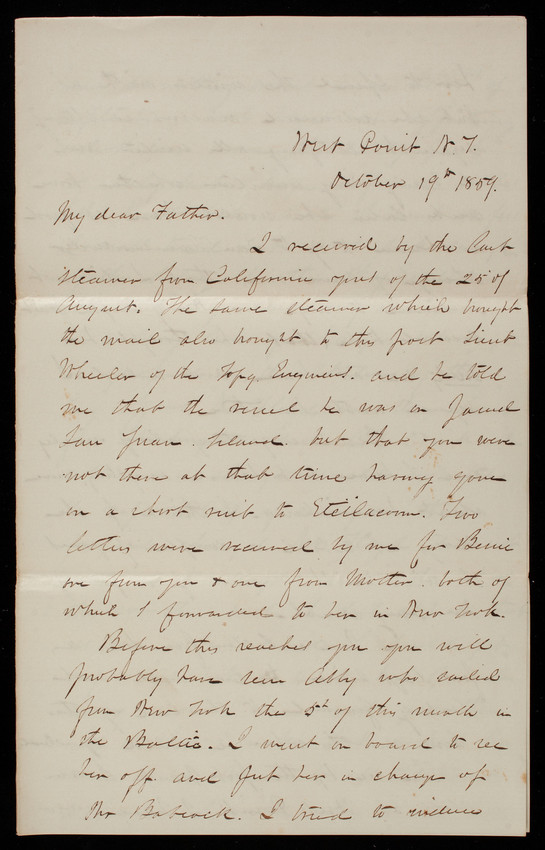 West Point N.Y.
October 19th 1859.
My dear Father.
I received by the last
steamer from California yours of the 25 of
August. The same steamer which brought
the mail also brought to this post Lieut
Wheeler of the Topg. Engineers. and he told
me that the vessel he was on passed
San Juan Island. but that you were
not there at that time having gone
on a short visit to Steilacoom. Two
letters were received by me for Bessie
one from you & one from Mother. both of
which I forwarded to her in New York.
Before this reaches you you will
probably have seen Abby who sailed
from New York the 5th of this month in
the Baltic. I went on board to see
her off. and put her in charge of
Mr Babcock. I tried to induce